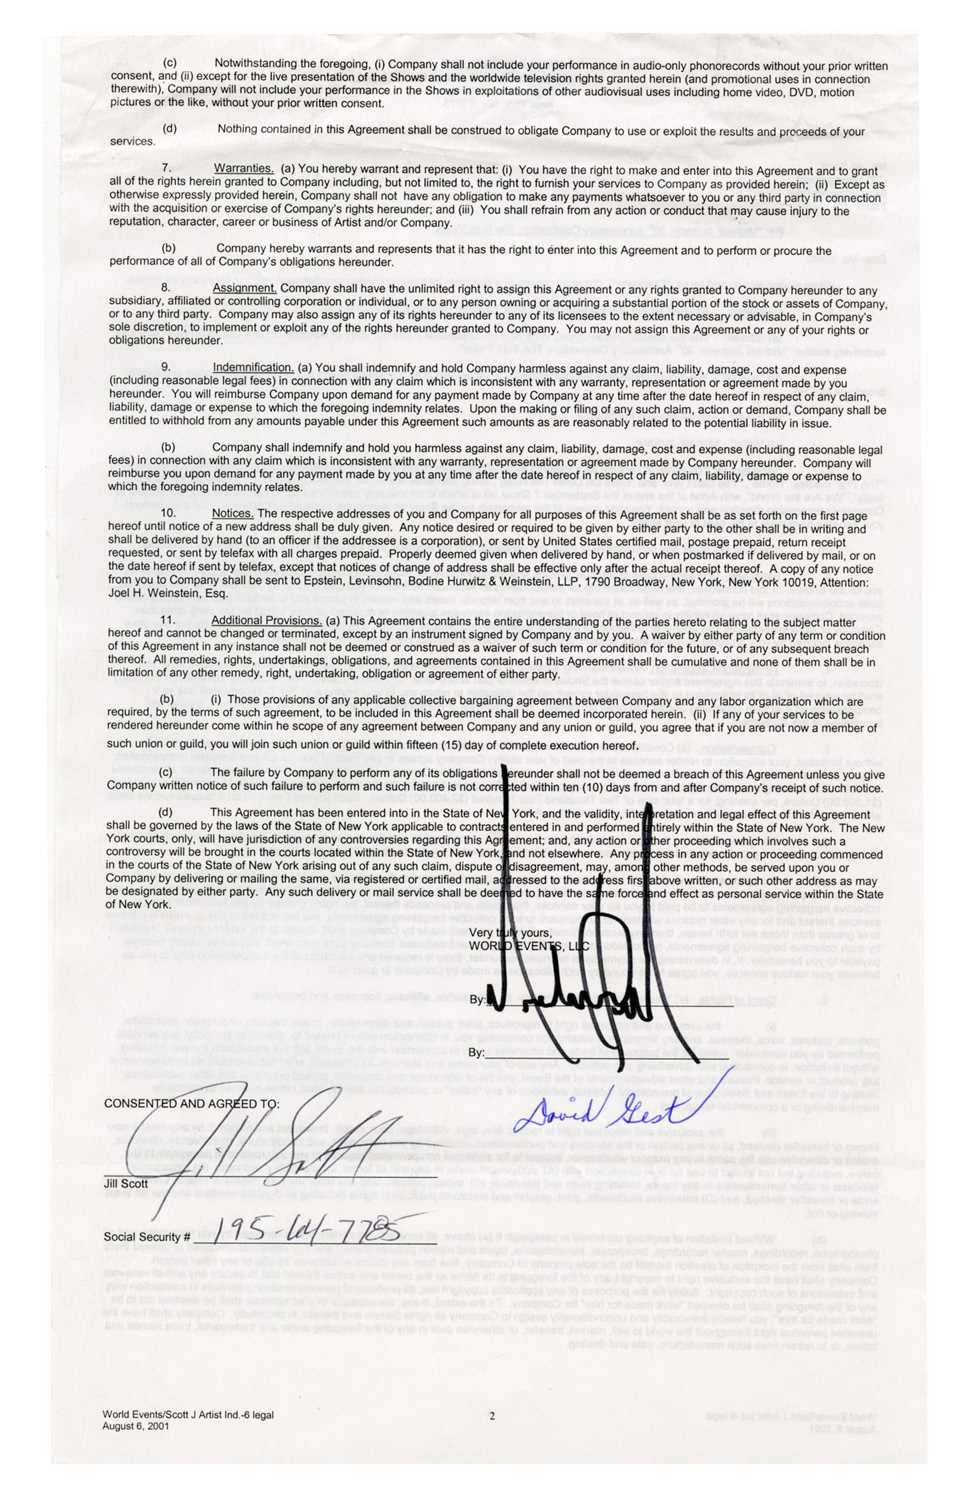 (c) Notwithstanding the foregoing, (i) Company shall not include your performance in audio-only phonorecords without your prior written
consent, and (ii) except for the live presentation of the Shows and the worldwide television rights granted herein (and promotional uses in connection
therewith), Company will not include your performance in the Shows in exploitations of other audiovisual uses including home video, DVD, motion
pictures or the like, without your prior written consent.
(d) Nothing contained in this Agreement shall be construed to obligate Company to use or exploit the results and proceeds of your
services.
7. Warranties. (a) You hereby warrant and represent that: (i) You have the right to make and enter into this Agreement and to grant
all of the rights herein granted to Company including, but not limited to, the right to furnish your services to Company as provided herein; (ii) Except as
otherwise expressly provided herein, Company shall not have any obligation to make any payments whatsoever to you or any third party in connection
with the acquisition or exercise of Company's rights hereunder; and (iii) You shall refrain from any action or conduct that may cause injury to the
reputation, character, career or business of Artist and/or Company.
(b) Company hereby warrants and represents that it has the right to enter into this Agreement and to perform or procure the
performance of all of Company's obligations hereunder.
8. Assignment. Company shall have the unlimited right to assign this Agreement or any rights granted to Company hereunder to any
subsidiary, affiliated or controlling corporation or individual, or to any person owning or acquiring a substantial portion of the stock or assets of Company,
or to any third party. Company may also assign any of its rights hereunder to any of its licensees to the extent necessary or advisable, in Company's
sole discretion, to implement or exploit any of the rights hereunder granted to Company. You may not assign this Agreement or any of your rights or
obligations hereunder.
9. Indemnification. (a) You shall indemnify and hold Company harmless against any claim, liability, damage, cost and expense
(including reasonable legal fees) in connection with any claim which is inconsistent with any warranty, representation or agreement made by you
hereunder. You will reimburse Company upon demand for any payment made by Company at any time after the date hereof in respect of any claim,
liability, damage or expense to which the foregoing indemnity relates. Upon the making or filing of any such claim, action or demand, Company shall be
entitled to withhold from any amounts payable under this Agreement such amounts as are reasonably related to the potential liability in issue.
(b) Company shall indemnify and hold you harmless against any claim, liability, damage, cost and expense (including reasonable legal
fees) in connection with any claim which is inconsistent with any warranty, representation or agreement made by Company hereunder. Company will
reimburse you upon demand for any payment made by you at any time after the date hereof in respect of any claim, liability, damage or expense to
which the foregoing indemnity relates.
10. Notices. The respective addresses of you and Company for all purposes of this Agreement shall be as set forth on the first page
hereof until notice of a new address shall be duly given. Any notice desired or required to be given by either party to the other shall be in writing and
shall be delivered by hand (to an officer if the addressee is a corporation), or sent by United States certified mail, postage prepaid, return receipt
requested, or sent by telefax with all charges prepaid. Properly deemed given when delivered by hand, or when postmarked if delivered by mail, or on
the date hereof if sent by telefax, except that notices of change of address shall be effective only after the actual receipt thereof. A copy of any notice
from you to Company shall be sent to Epstein, Levinsohn, Bodine Hurwitz & Weinstein, LLP, 1790 Broadway, New York, New York 10019, Attention:
Joel H. Weinstein, Esq.
11. Additional Provisions. (a) This Agreement contains the entire understanding of the parties hereto relating to the subject matter
hereof and cannot be changed or terminated, except by an instrument signed by Company and by you. A waiver by either party of any term or condition
of this Agreement in any instance shall not be deemed or construed as a waiver of such term or condition for the future, or of any subsequent breach
thereof. All remedies, rights, undertakings, obligations, and agreements contained in this Agreement shall be cumulative and none of them shall be in
limitation of any other remedy, right, undertaking, obligation or agreement of either party.
(b) (i) Those provisions of any applicable collective bargaining agreement between Company and any labor organization which are
required, by the terms of such agreement, to be included in this Agreement shall be deemed incorporated herein. (ii) If any of your services to be
rendered hereunder come within he scope of any agreement between Company and any union or guild, you agree that if you are not now a member of
such union or guild, you will join such union or guild within fifteen (15) day of complete execution hereof.
(c) The failure by Company to perform any of its obligations hereunder shall not be deemed a breach of this Agreement unless you give
Company written notice of such failure to perform and such failure is not corrected within ten (10) days from and after Company's receipt of such notice.
(d) This Agreement has been entered into in the State of New York, and the validity, interpretation and legal effect of this Agreement
shall be governed by the laws of the State of New York applicable to contracts entered in and performed entirely within the State of New York. The New
York courts, only, will have jurisdiction of any controversies regarding this Agreement; and, any action or other proceeding which involves such a
controversy will be brought in the courts located within the State of New York, and not elsewhere. Any process in any action or proceeding commenced
in the courts of the State of New York arising out of any such claim, dispute or disagreement, may, among other methods, be served upon you or
Company by delivering or mailing the same, via registered or certified mail, addressed to the address first above written, or such other address as may
be designated by either party. Any such delivery or mail service shall be deemed to have the same force and effect as personal service within the State
of New York.
Very truly yours,
WORLD EVENTS, LLC
By:
By:
David Gest
CONSENTED AND AGREED TO:
Jill Scott
Jill Scott
Social Security # [number omitted for privacy]
World Events/Scott J Artist Ind.-6 legal
August 6, 2001
2